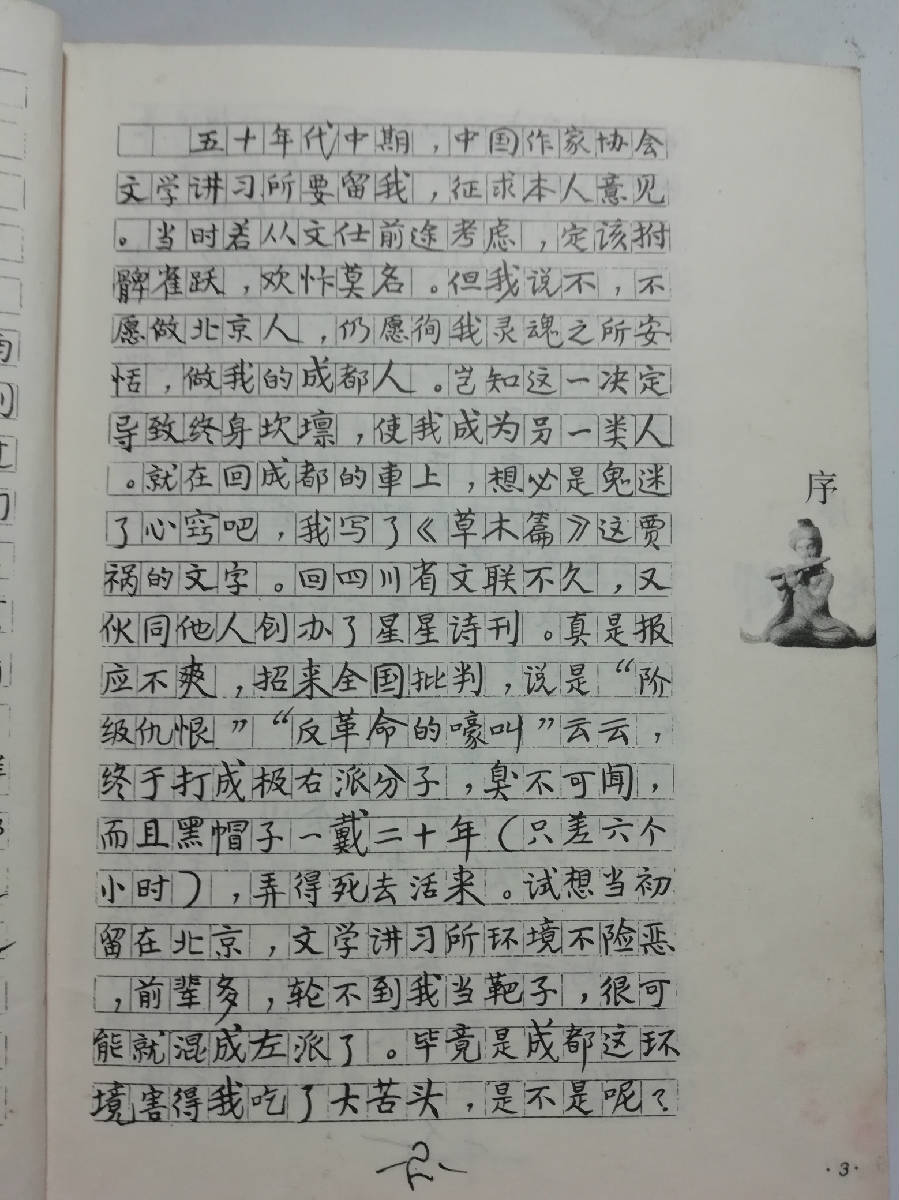 五十年代中期，中国作家协会
文学讲习所要留我，征求本人意见
。当时若从文仕前途考虑，定该拊
髀雀跃，欢忭莫名。但我说不，不
愿做北京人，仍愿徇我灵魂之所安
恬，做我的成都人。岂知这一决定
导致终身坎壈，使我成为另一类人
。就在回成都的車上，想必是鬼迷
了心窍吧，我写了《草木篇》这贾
祸的文字。回四川省文联不久，又
伙同他人创办了星星诗刊。真是报
应不爽，招来全国批判，说是“阶
级仇恨”“反革命的嚎叫”云云，
终于打成极右派分子，臭不可闻，
而且黑帽子一戴二十年（只差六个
小时），弄得死去活来。试想当初
留在北京，文学讲习所环境不险恶
，前辈多，轮不到我当靶子，很可
能就混成左派了。毕竟是成都这环
境害得我吃了大苦头，是不是呢？
2
序
·3·
南